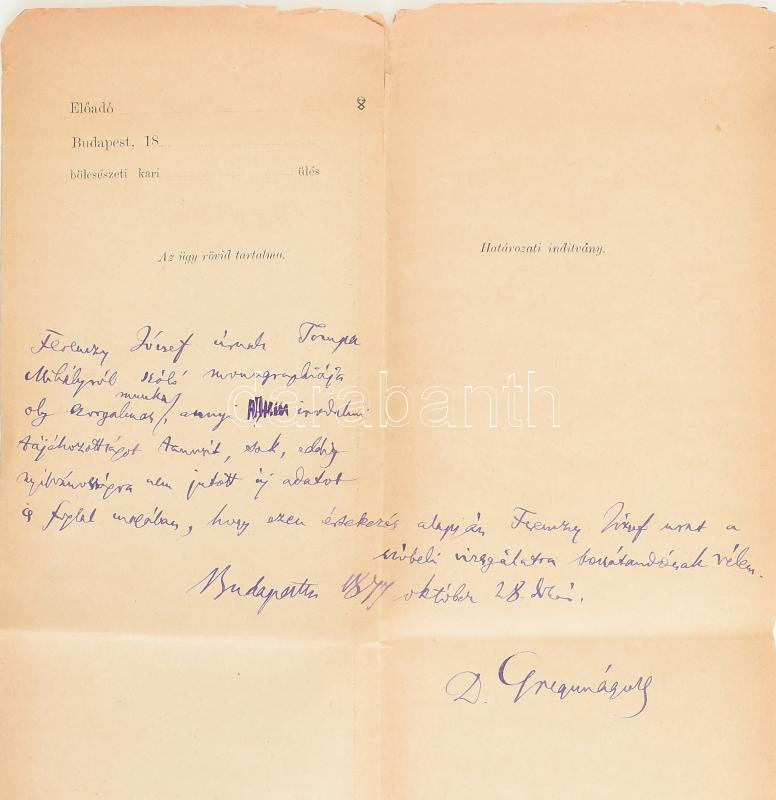 Előadó
Budapest, 18
bölcsészeti kari ülés
Az ügy rövid tartalma.
Határozati inditvány.
Ferenczy József úrnak Tompa
Mihályról szóló monographiája
munka
oly szorgalmas, annyi irodalmi
tájékozottságot tanusít, sok, eddig
nyilvánosságra nem jutott új adatot
is foglal magában, hogy ezen értekezés alapján Ferenczy József urat a
szóbeli vizsgálatra bocsátandónak vélem.
Budapesten 1877 október 28-dikán.
D. Greguss Ágost
darabanth